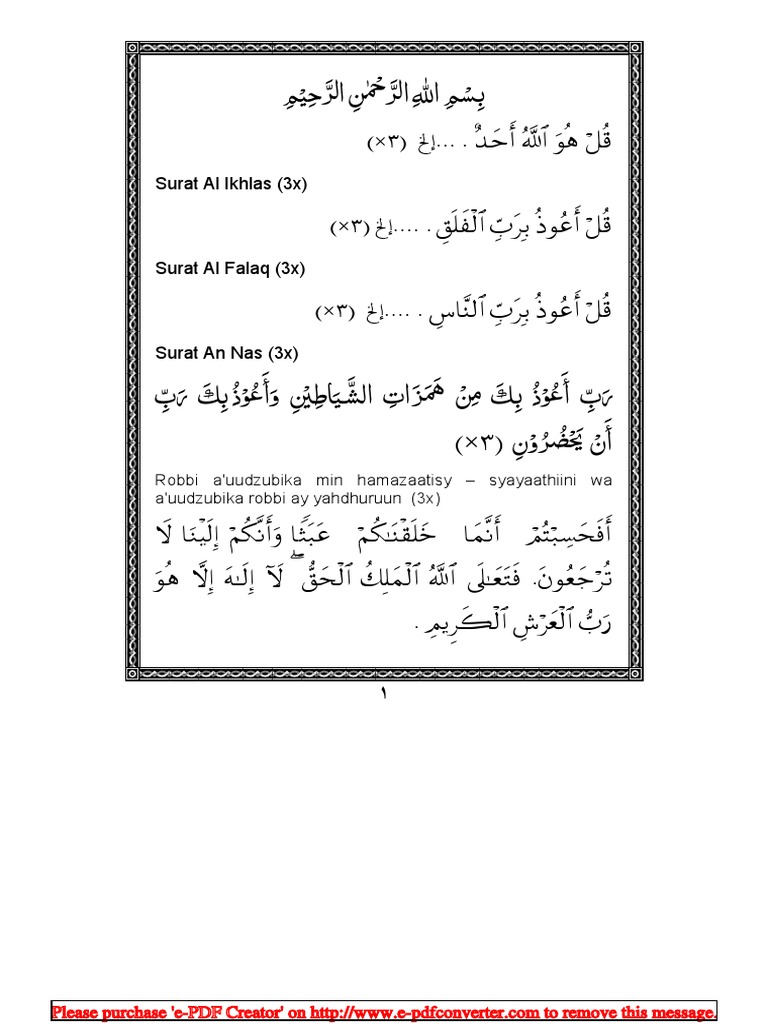 بِسْمِ اللهِ الرَّحْمٰنِ الرَّحِيْمِ
قُلْ هُوَ ٱللَّهُ أَحَدٌ . ...إلخ (٣×)
Surat Al Ikhlas (3x)
قُلْ أَعُوذُ بِرَبِّ ٱلْفَلَقِ . ....إلخ (٣×)
Surat Al Falaq (3x)
قُلْ أَعُوذُ بِرَبِّ ٱلنَّاسِ . ....إلخ (٣×)
Surat An Nas (3x)
رَبِّ أَعُوْذُ بِكَ مِنْ هَمَزَاتِ الشَّيَاطِيْنِ وَأَعُوْذُ بِكَ رَبِّ
أَنْ يَحْضُرُوْنِ (٣×)
Robbi a'uudzubika min hamazaatisy – syayaathiini wa
a'uudzubika robbi ay yahdhuruun (3x)
أَفَحَسِبْتُمْ أَنَّمَا خَلَقْنَـٰكُمْ عَبَثًا وَأَنَّكُمْ إِلَيْنَا لَا
تُرْجَعُونَ. فَتَعَـٰلَى ٱللَّهُ ٱلْمَلِكُ ٱلْحَقُّ ۖ لَآ إِلَـٰهَ إِلَّا هُوَ
رَبُّ ٱلْعَرْشِ ٱلْكَرِيمِ .
١
Please purchase 'e-PDF Creator' on http://www.e-pdfconverter.com to remove this message.